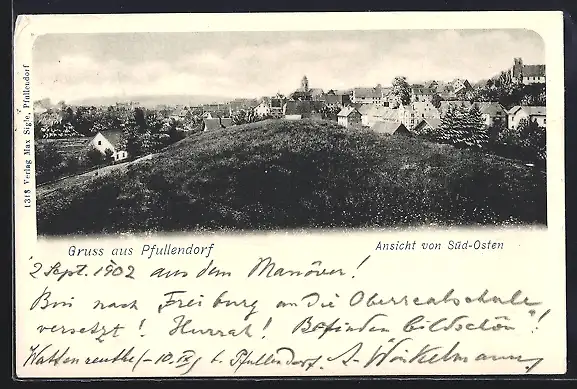 1318 Verlag Max Sigle, Pfullendorf
Gruss aus Pfullendorf
Ansicht von Süd-Osten
2 Sept. 1902 aus dem Manöver!
Bin nach Freiburg an die Oberrealschule
versetzt! Hurrah! Befinden bildschön!
Wattenreuthe - 10. IX b. Pfullendorf. A. Winkelmann